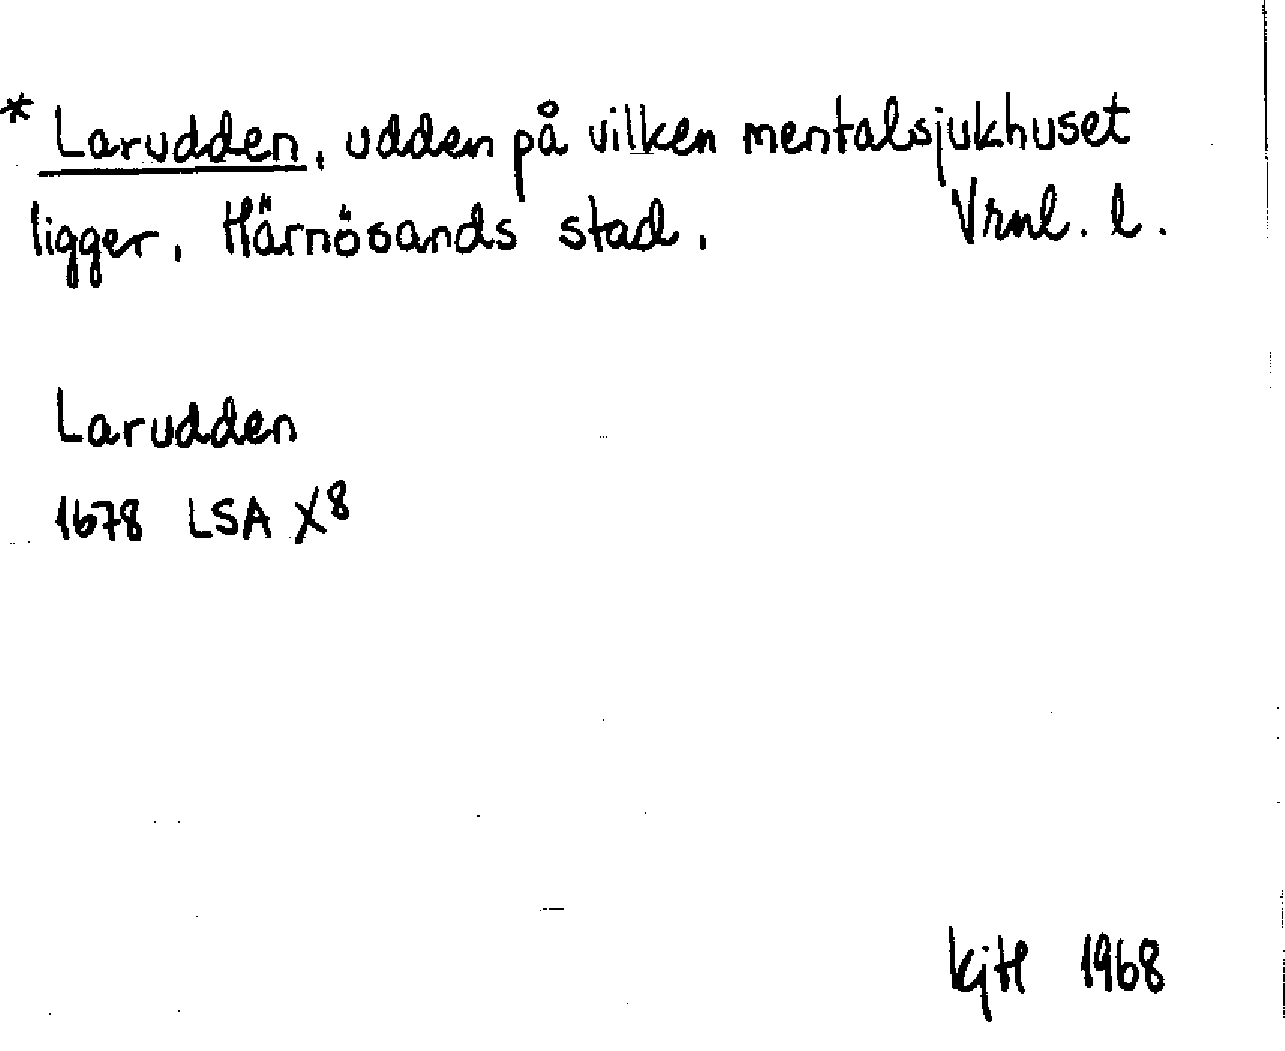 * Larudden, udden på vilken mentalsjukhuset
ligger, Härnösands stad. Vrnl. l.
Larudden
1678 LSA X8
KjH 1968